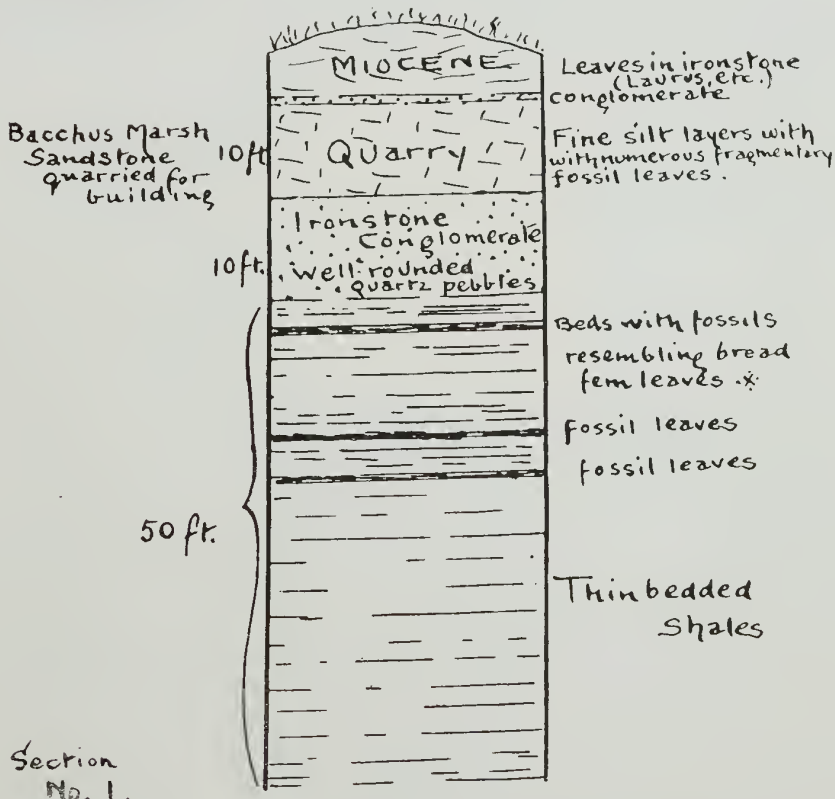 MIOCENE
Leaves in ironstone
(Laurus, etc.)
conglomerate
Bacchus Marsh
Sandstone
quarried for
building
10ft
Quarry
Fine silt layers with
with numerous fragmentary
fossil leaves.
Ironstone
Conglomerate
10ft.
Well-rounded
quartz pebbles
Beds with fossils
resembling bread
fern leaves .*
fossil leaves
fossil leaves
50 ft.
Thin bedded
Shales
Section
No. 1.